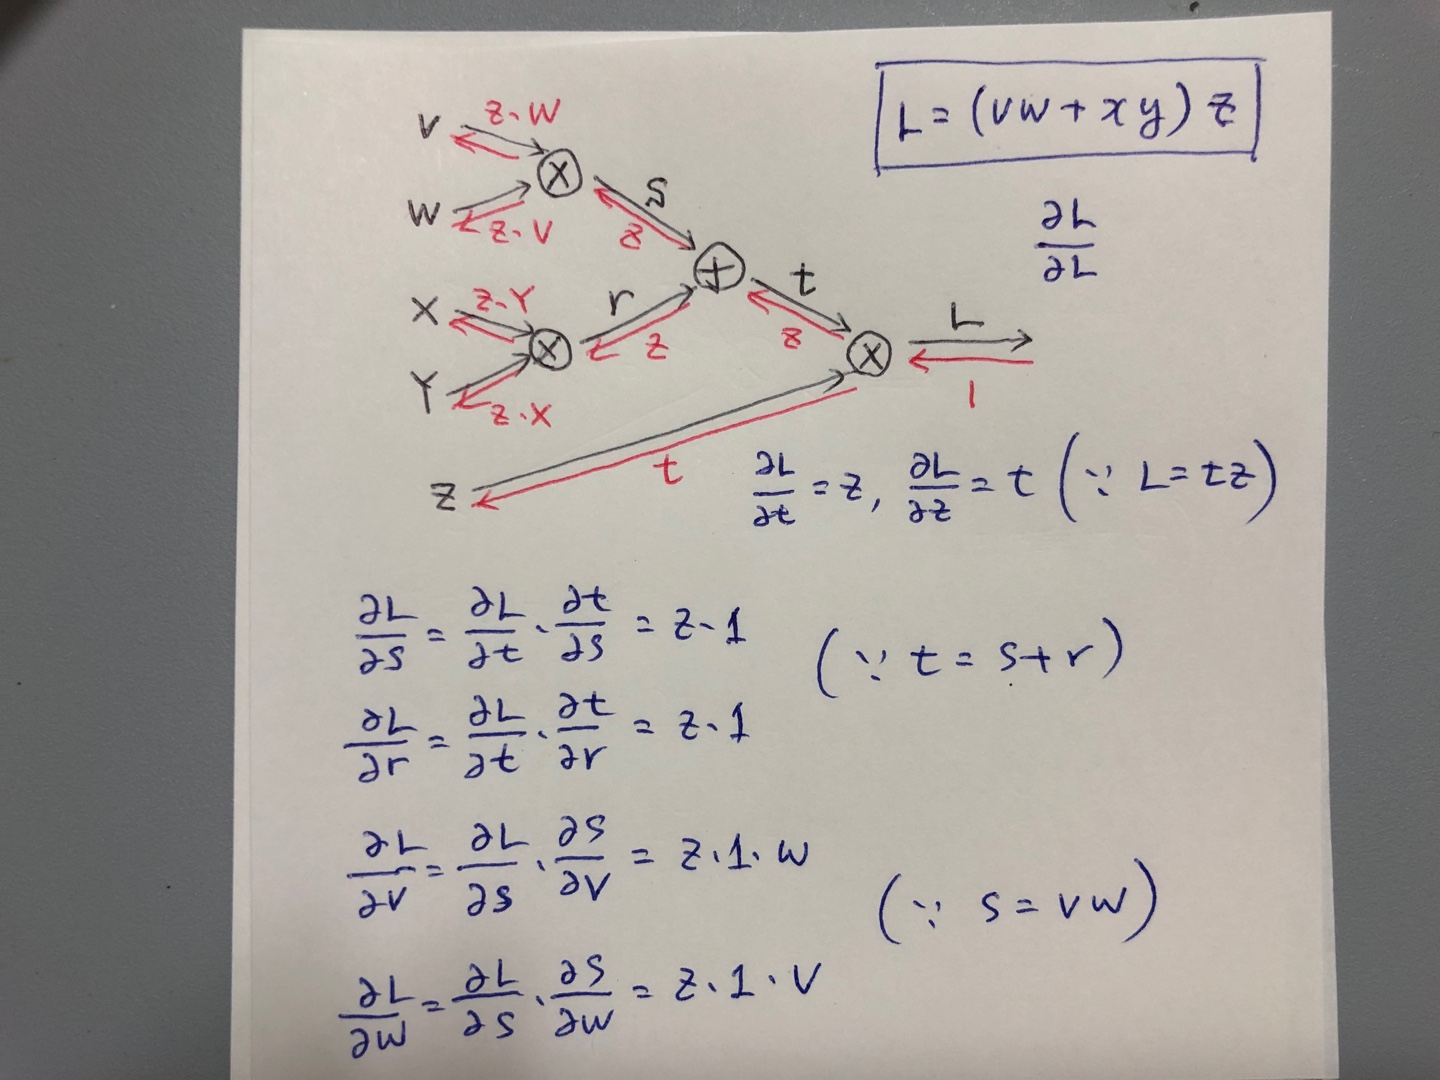 L = (vw + xy) z
∂L/∂L
V
z·W
W
z·V
X
z·Y
Y
z·X
z
×
×
s
z
r
z
+
t
z
×
t
L
1
∂L/∂t = z, ∂L/∂z = t (∵ L = tz)
∂L/∂s = ∂L/∂t · ∂t/∂s = z·1 (∵ t = s+r)
∂L/∂r = ∂L/∂t · ∂t/∂r = z·1
∂L/∂v = ∂L/∂s · ∂s/∂v = z·1·w (∵ s = vw)
∂L/∂w = ∂L/∂s · ∂s/∂w = z·1·v